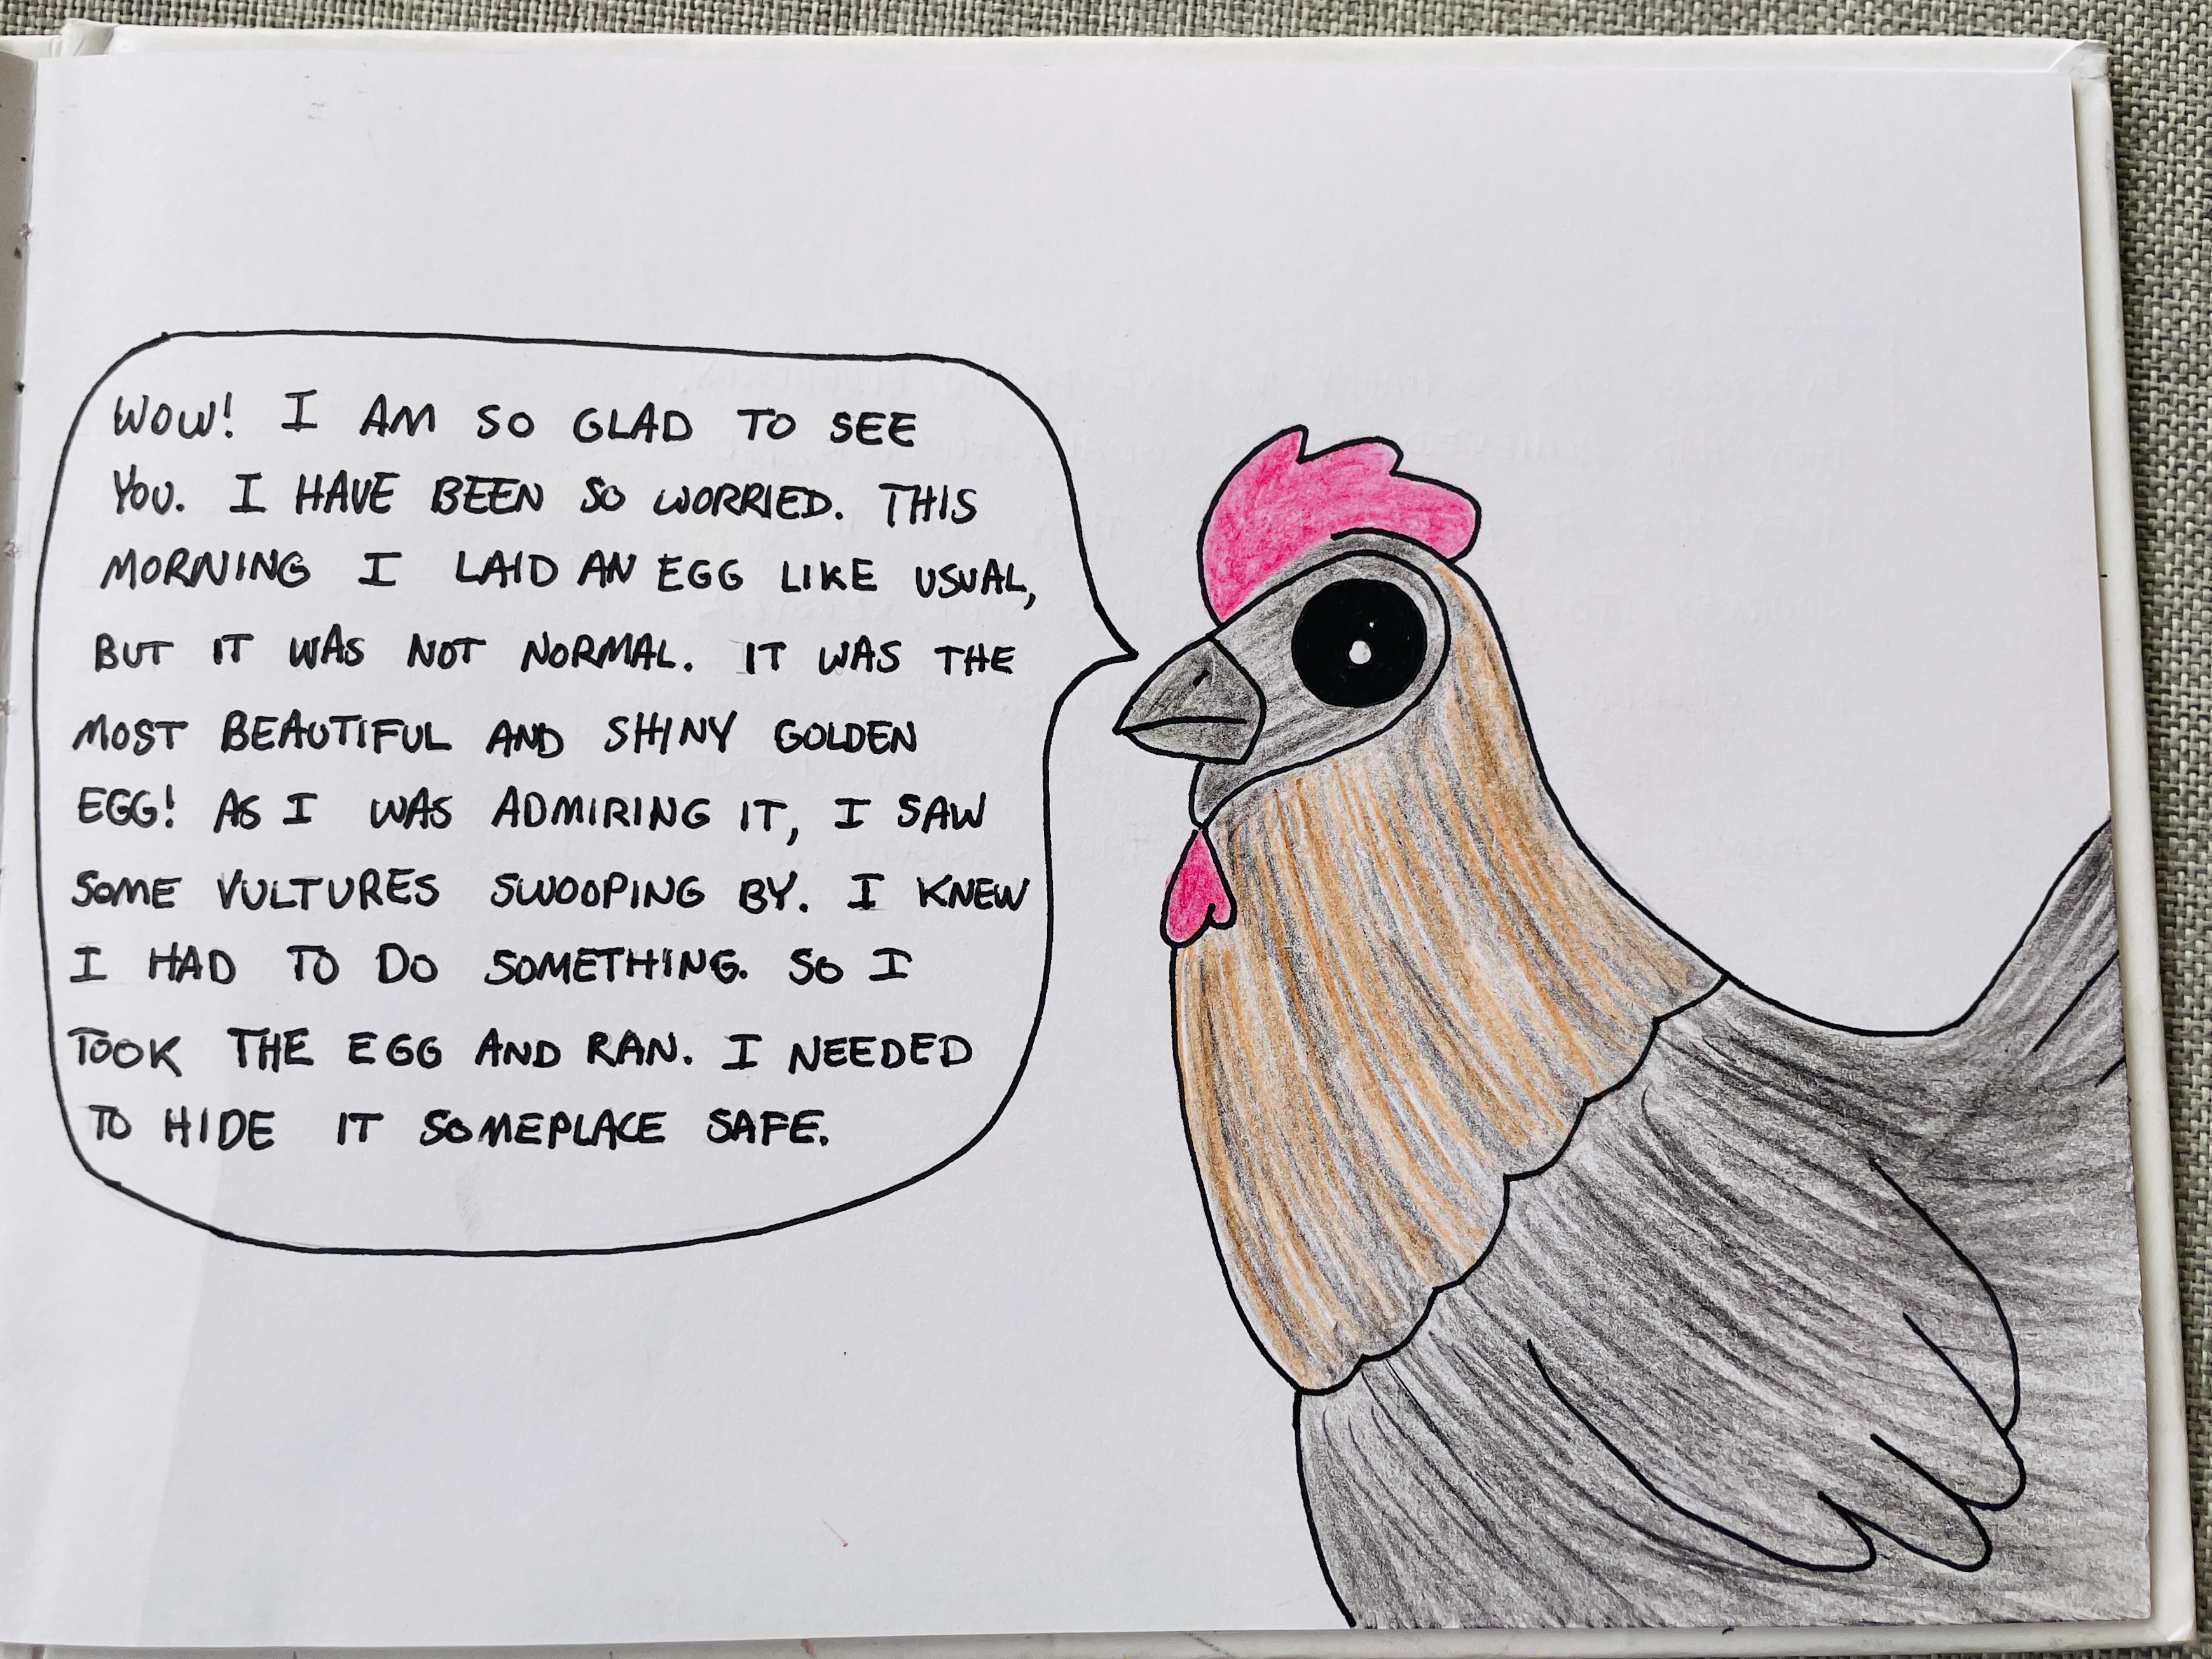 WOW! I AM SO GLAD TO SEE
YOU. I HAVE BEEN SO WORRIED. THIS
MORNING I LAID AN EGG LIKE USUAL,
BUT IT WAS NOT NORMAL. IT WAS THE
MOST BEAUTIFUL AND SHINY GOLDEN
EGG! AS I WAS ADMIRING IT, I SAW
SOME VULTURES SWOOPING BY. I KNEW
I HAD TO DO SOMETHING. SO I
TOOK THE EGG AND RAN. I NEEDED
TO HIDE IT SOMEPLACE SAFE.